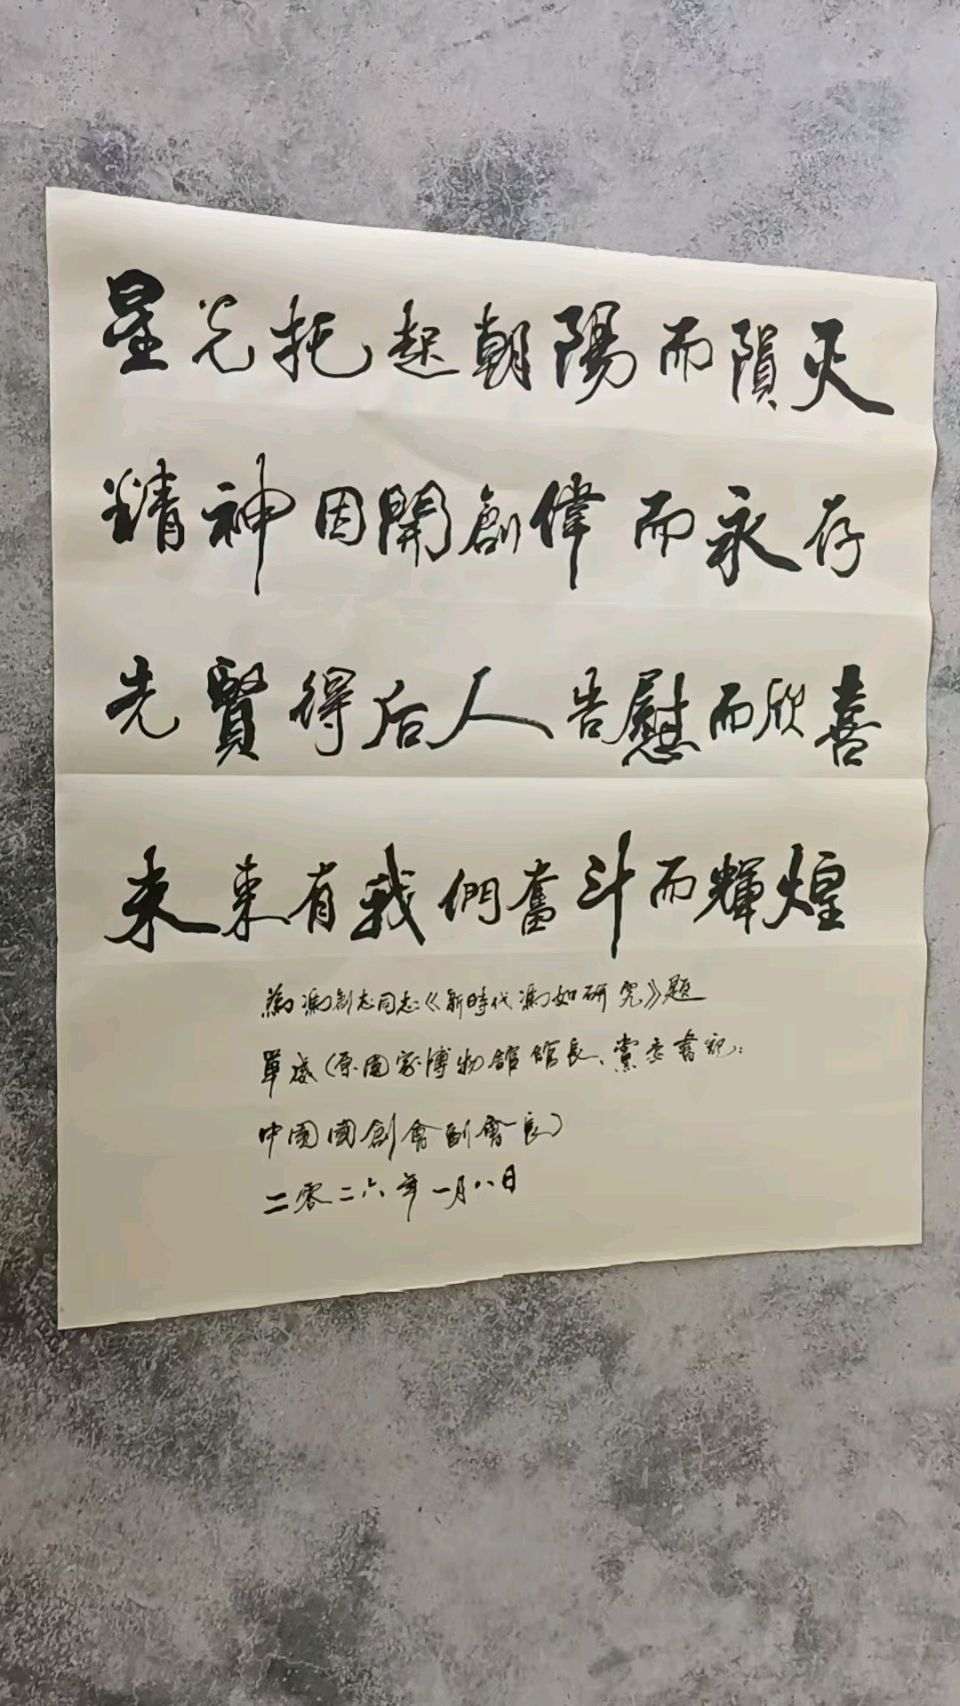 星光托起朝陽而隕灭
精神因開創偉而永存
先賢得后人告慰而欣喜
未来有我們奮斗而輝煌
為馮創志同志《新時代馮如研究》題
單威（原國家博物館館長、黨委書記；
中國國創會副會長）
二零二六年一月八日